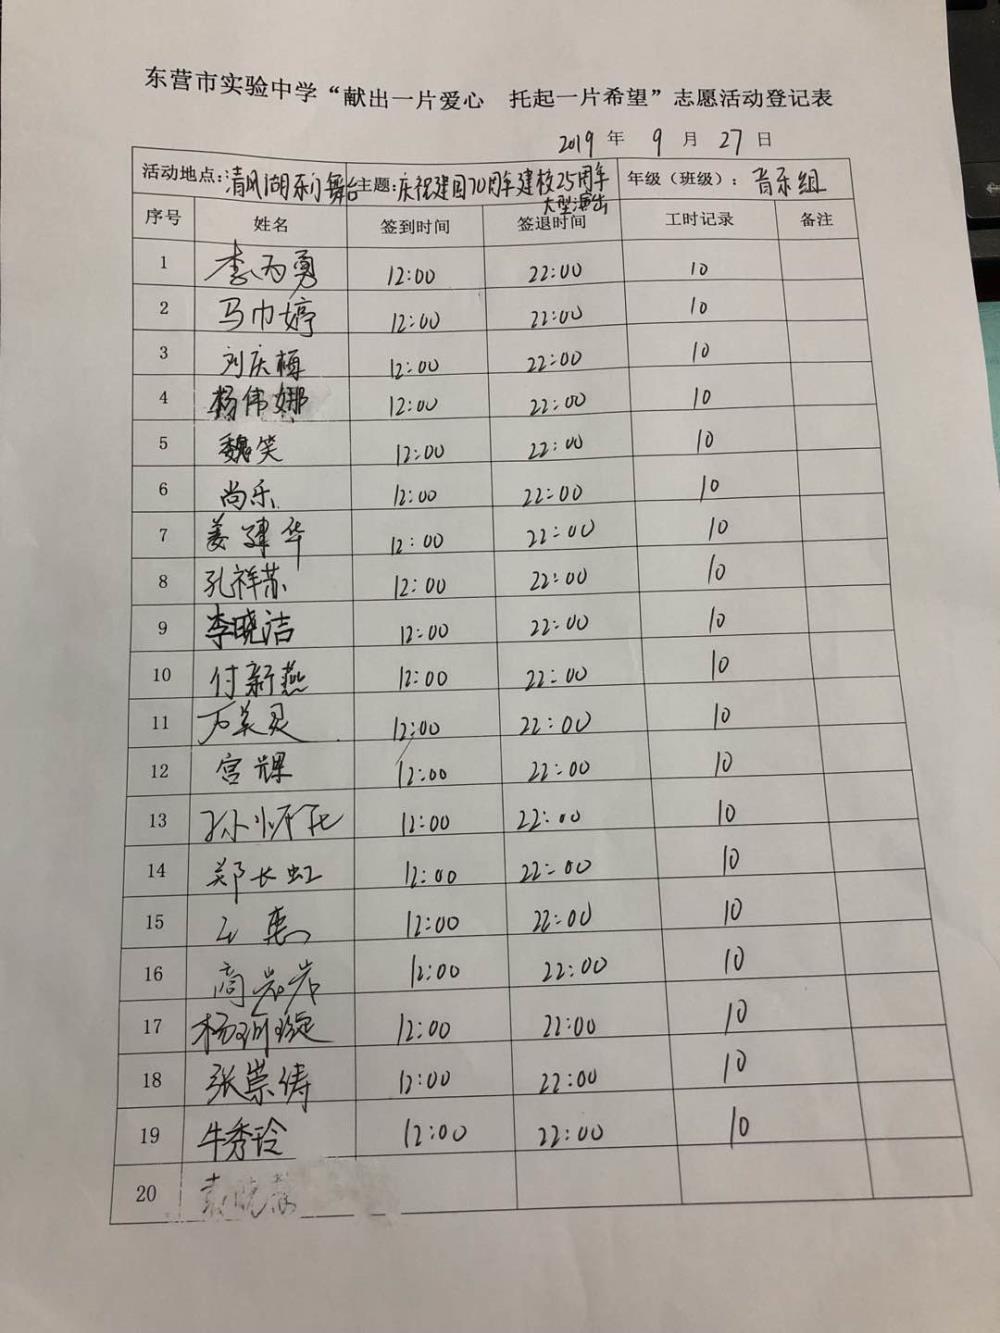 东营市实验中学“献出一片爱心 托起一片希望”志愿活动登记表
2019 年 9 月 27 日
活动地点：清风湖东门舞台 主题：庆祝建国70周年建校25周年大型演出 年级（班级）：音乐组
序号 姓名 签到时间 签退时间 工时记录 备注
1 李为勇 12:00 22:00 10
2 马巾婷 12:00 22:00 10
3 刘庆梅 12:00 22:00 10
4 杨伟娜 12:00 22:00 10
5 魏笑 12:00 22:00 10
6 尚乐 12:00 22:00 10
7 姜建华 12:00 22:00 10
8 孔祥苏 12:00 22:00 10
9 李晓洁 12:00 22:00 10
10 付新燕 12:00 22:00 10
11 万美灵 12:00 22:00 10
12 宫辉 12:00 22:00 10
13 12:00 22:00 10
14 郑长虹 12:00 22:00 10
15 12:00 22:00 10
16 商岩岩 12:00 22:00 10
17 杨珊璇 12:00 22:00 10
18 张崇涛 12:00 22:00 10
19 牛秀玲 12:00 22:00 10
20